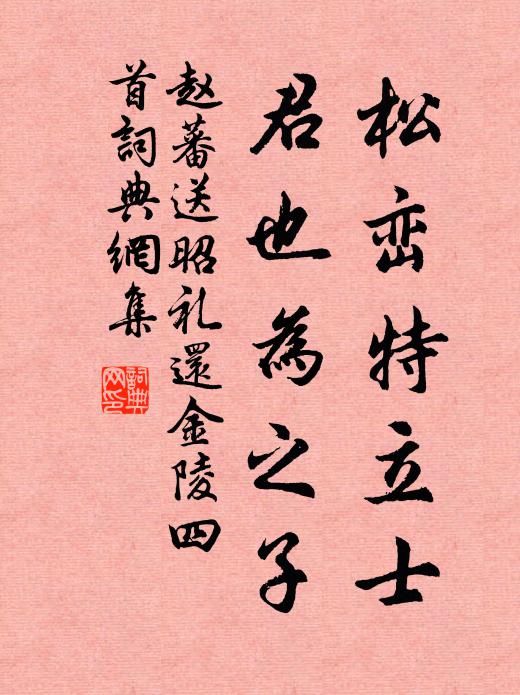 松峦特立士
君也為之子
赵蕃送昭礼還金陵四
首詞典網集
詞典
网印